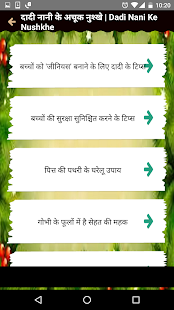 10:20
दादी नानी के अचूक नुश्खे | Dadi Nani Ke
Nushkhe
बच्चों को 'जीनियस' बनाने के लिए दादी के टिप्स
बच्चों की सुरक्षा सुनिश्चित करने के टिप्स
पित्त की पथरी के घरेलू उपाय
गोभी के फूलों में है सेहत की महक